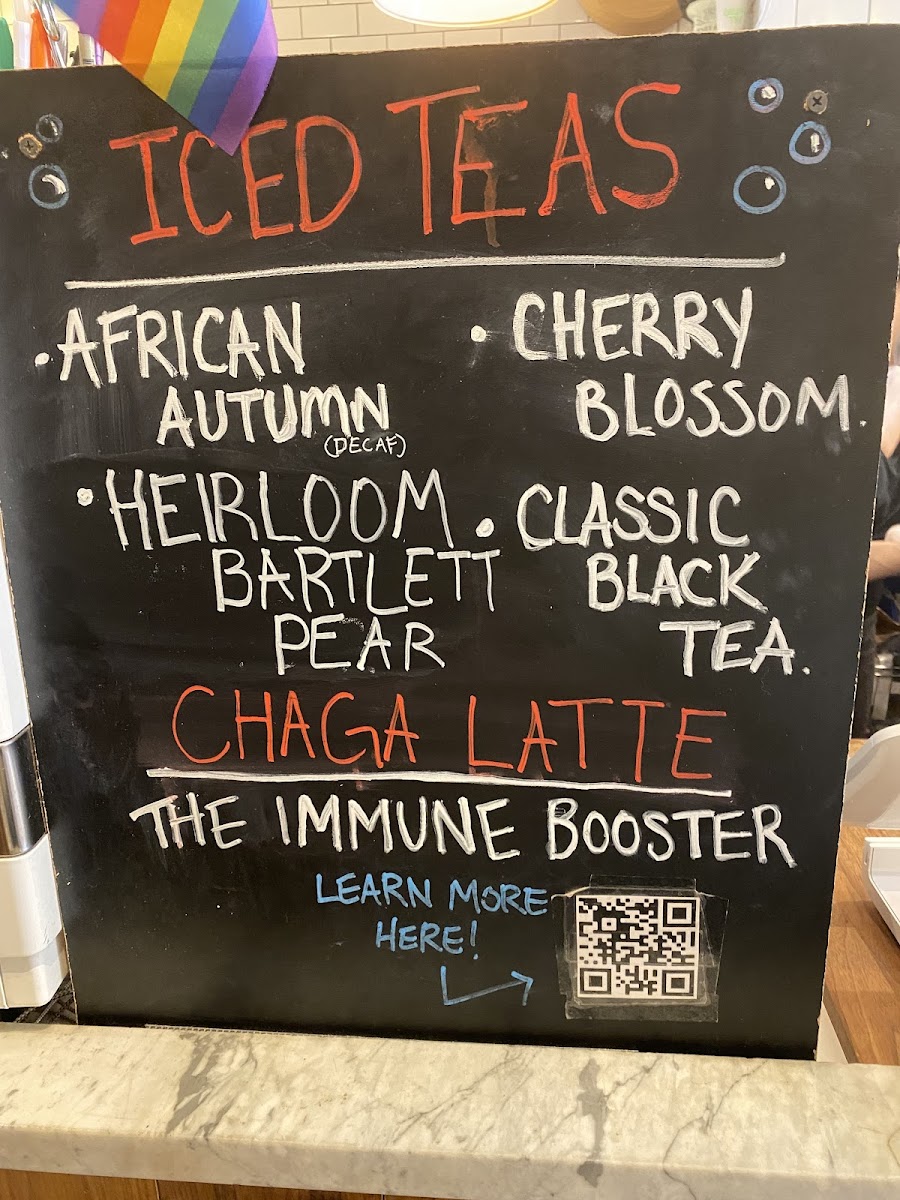 ICED TEAS
• AFRICAN
AUTUMN
(DECAF)
• CHERRY
BLOSSOM.
• HEIRLOOM
BARTLETT
PEAR
• CLASSIC
BLACK
TEA.
CHAGA LATTE
THE IMMUNE BOOSTER
LEARN MORE
HERE!